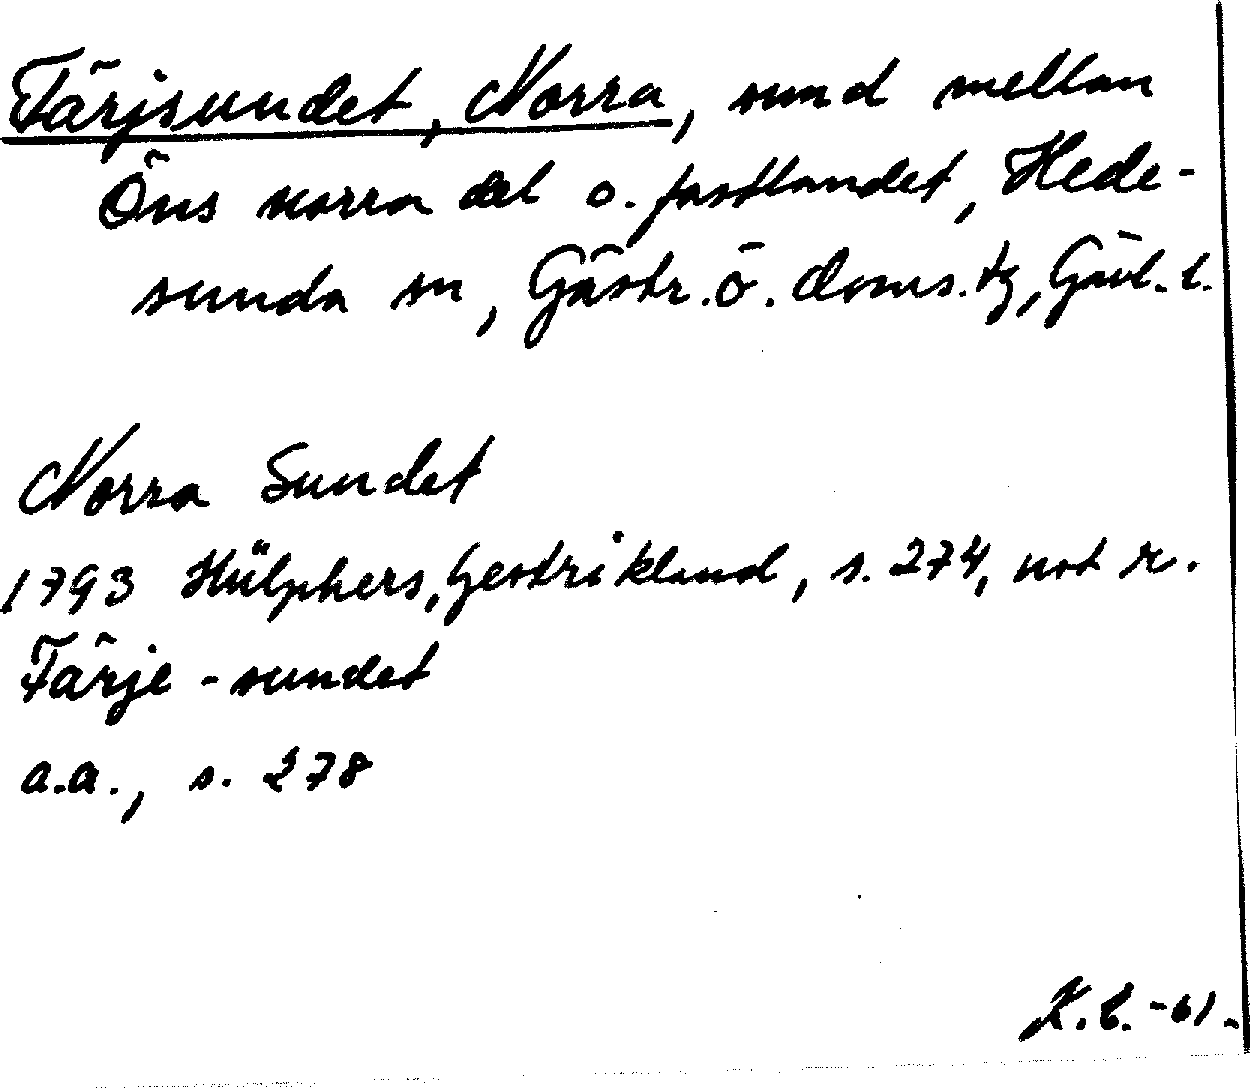 Färjsundet, Norra, sund mellan
Öns norra del o. fastlandet, Hede-
sunda sn, Gästr. ö. doms. tg, Gävl. l.
Norra Sundet
1793 Hülphers, Gestrikland, s. 274, not r.
Färje-sundet
a.a., s. 278
K.C. -61.